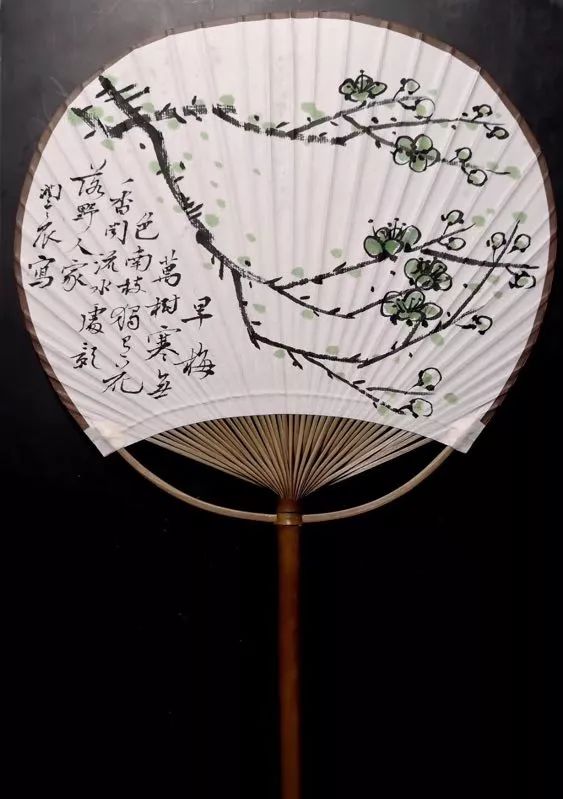 早梅
萬樹寒無
色南枝獨有花
香聞流水處影
落野人家
辰寫